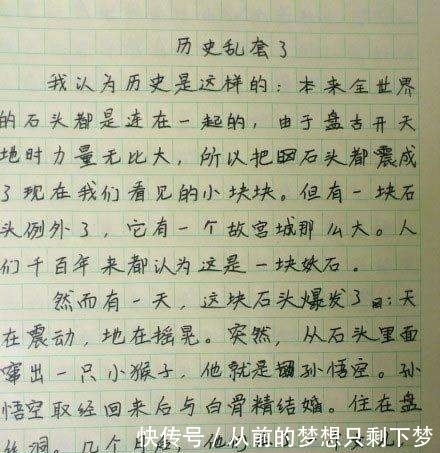 历史乱套了
我认为历史是这样的：本来全世界
的石头都是连在一起的，由于盘古开天
地时力量无比大，所以把石头都震成
了现在我们看见的小块块。但有一块石
头例外了，它有一个故宫城那么大。人
们千百年来都认为这是一块妖石。
然而有一天，这块石头爆发了：天
在震动，地在摇晃。突然，从石头里面
窜出一只小猴子，他就是孙悟空。孙
悟空取经回来后与白骨精结婚。住在盘
丝洞。几个月后，他
快传号／从前的梦想只剩下梦